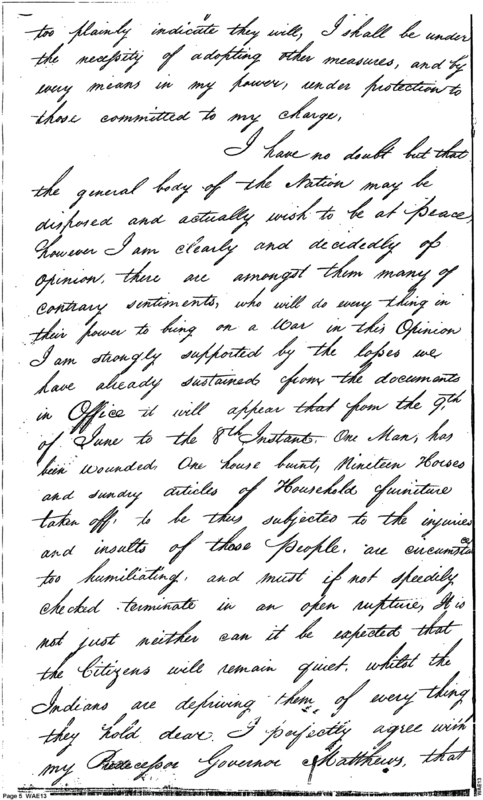 too plainly indicate they will, I shall be under
the necessity of adopting other measures, and by
every means in my power, under protection to
those committed to my charge,
I have no doubt but that
the general body of the Nation may be
disposed and actually wish to be at peace,
however I am clearly and decidedly of
opinion, there are amongst them many of
contrary sentiments, who will do every thing in
their power to bring on a War in this Opinion
I am strongly supported by the losses we
have already sustained from the documents
in Office it will appear that from the 9th
of June to the 8th Instant. One Man, has
been wounded, One house burnt, Nineteen Horses
and sundry articles of Household furniture
taken off, to be thus subjected to the injuries
and insults of those People, are circumstces
too humiliating, and must if not speedily
checked terminate in an open rupture, It is
not just neither can it be expected that
the Citizens will remain quiet whilst the
Indians are depriving them of every thing
they hold dear I perfectly agree with
my Predecessor Governor Matthews, that
Page 5 WAE13
WAE13